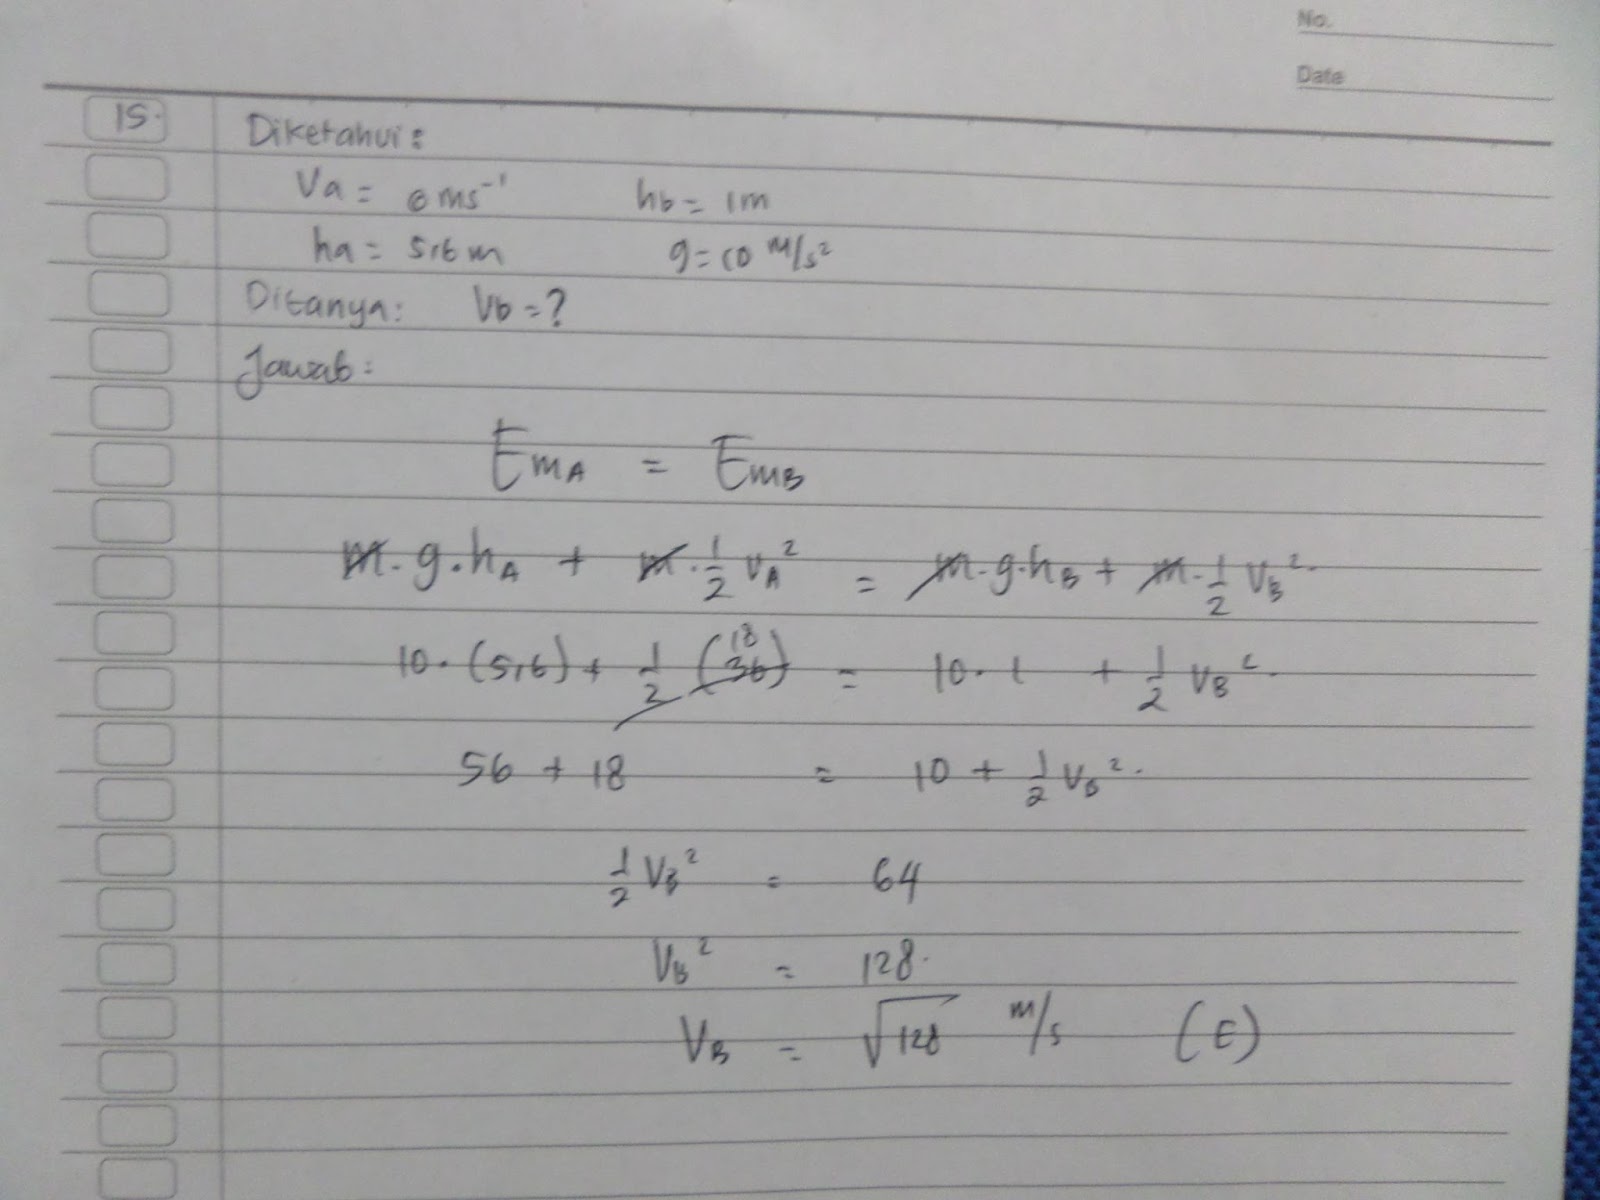 No.
Date
15.
Diketahui:
Va = 6 ms⁻¹ hb = 1m
ha = 5,6 m g = 10 m/s²
Ditanya: Vb = ?
Jawab:
EmA = EmB
m.g.hA + m.1/2 vA² = m.g.hB + m.1/2 VB².
10.(5,6) + 1/2 (36) 18 = 10.1 + 1/2 VB².
56 + 18 = 10 + 1/2 VB².
1/2 VB² = 64
VB² = 128.
VB = √128 m/s (E)